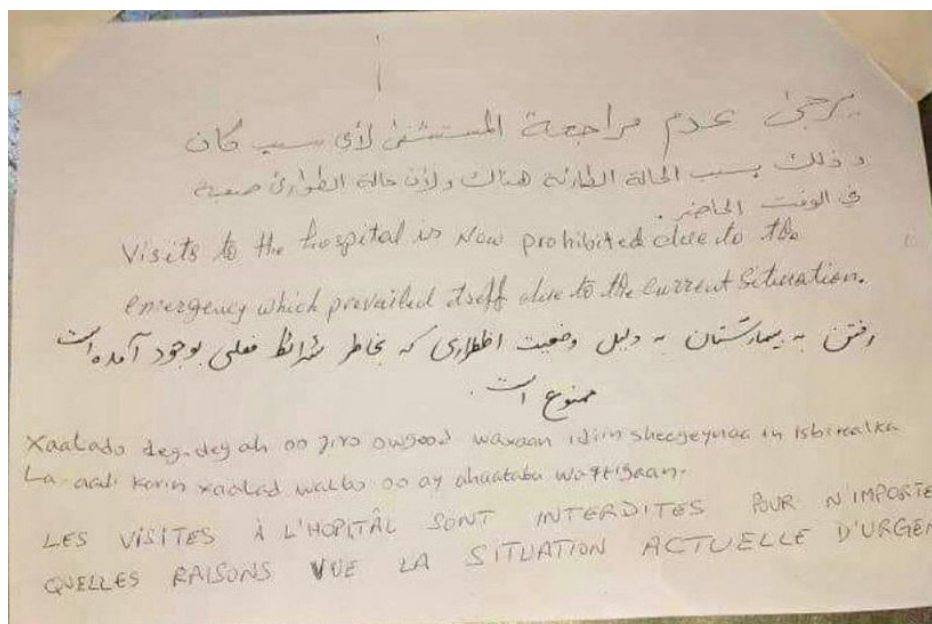 يرجى عدم مراجعة المستشفى لأي سبب كان
و ذلك بسبب الحالة الطارئة هناك ولأن حالة الطوارئ صعبة
في الوقت الحاضر.
Visits to the hospital is Now prohibited due to the
emergency which prevailed itself due to the current situation.
رفتن به بیمارستان به دلیل وضعیت اظطراری که بخاطر شرائط فعلی بوجود آمده است
ممنوع است.
Xaalado deg-deg ah oo jiro owgood waxaan idiin sheegeynaa in Isbitaalka
La aadi Karin xaalad walbo oo ay ahaatabo waqtigaan.
LES VISITES À L'HOPITÂL SONT INTERDITES POUR N'IMPORTE
QUELLES RAISONS VUE LA SITUATION ACTUELLE D'URGEN